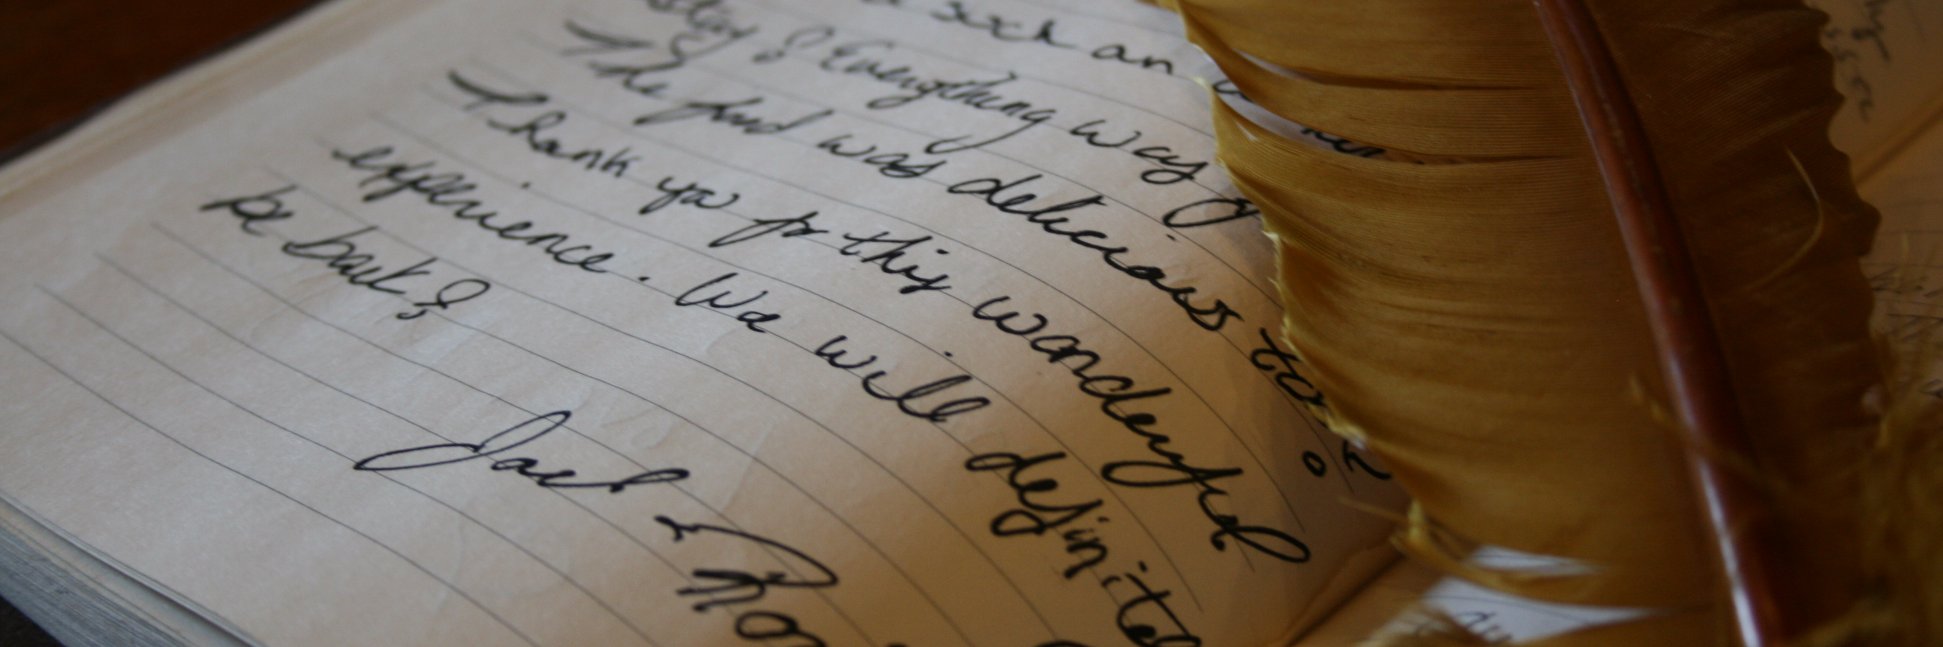 such an
stay! Everything was
The food was delicious too!
Thank you for this wonderful
experience. We will definite
be back!
Jack &